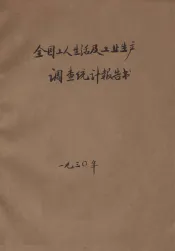 全国工人生活及工业生产
调查统计报告书
一九三〇年